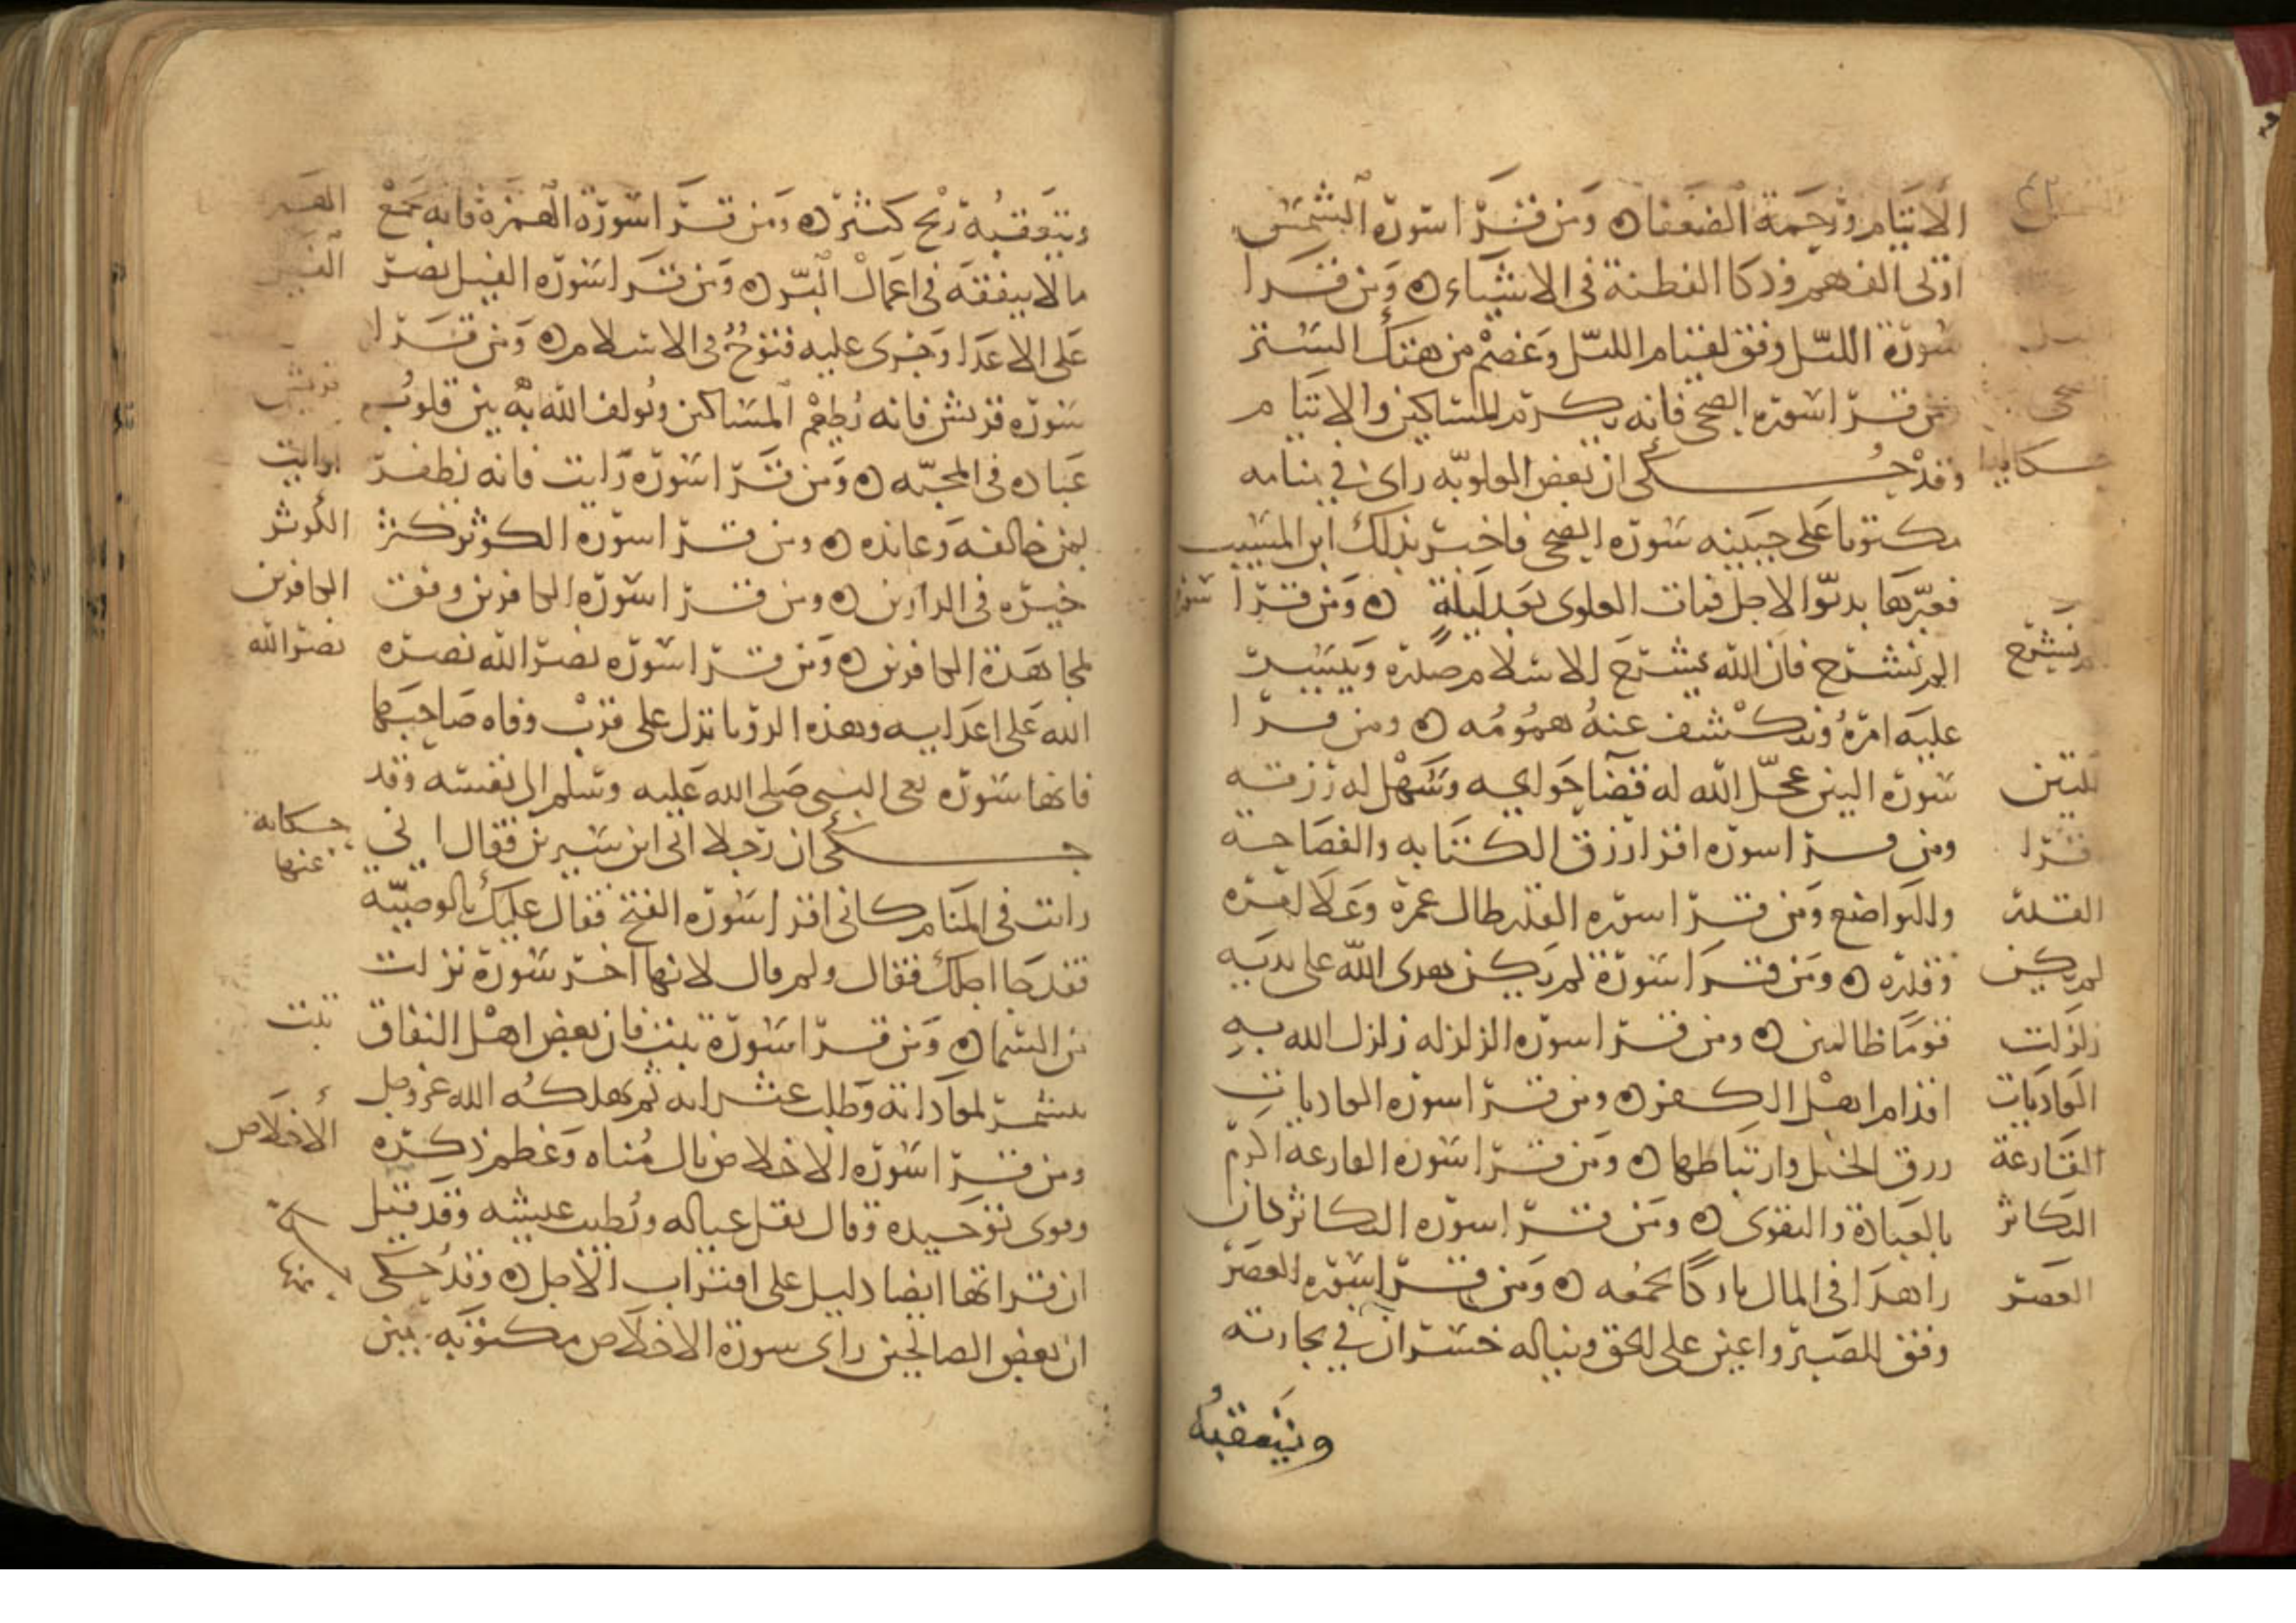 الايتام ورحمة الضعفا ومن قرا سورة الشمس
اوتى الفهم وذكا الفطنة فى الاشياء ومن قرا
سورة الليل وفق لقيام الليل وعصم من هتك الستر
ومن قرا سورة الضحى فانه يكرم المساكين والايتام
وقد حكى ان بعض العلوية راى فى منامه
مكتوبا على جبينه سورة الضحى فاخبر بذلك ابن المسيب
فعبرها بدنو الاجل فمات العلوى بعد ليلة ومن قرا سورة
الم نشرح فان الله يشرح للاسلام صدره وييسر
عليه امره وتنكشف عنه همومه ومن قرا
سورة التين عجل الله له قضا حوايجه وسهل له رزقه
ومن قرا سورة اقرا رزق الكتابه والفصاحة
والتواضع ومن قرا سورة القدر طال عمره وعلا امره
وقدره ومن قرا سورة لم يكن هدى الله على يديه
قوما ظالمين ومن قرا سورة الزلزله زلزل الله به
اقدام اهل الكفر ومن قرا سورة العاديات
رزق الخيل وارتباطها ومن قرا سورة القارعة اكرم
بالعبادة والتقوى ومن قرا سورة التكاثر كان
زاهدا فى المال تاركا لجمعه ومن قرا سورة العصر
وفق للصبر واعين على الحق ويناله خسران فى تجارته
ويتعقبه
حكاية
الم نشرح
التين
اقرا
القدر
لم يكن
زلزلت
العاديات
القارعة
التكاثر
العصر
ويتعقبه ربح كثير ومن قرا سورة الهمزة فانه يجمع
مالا ينفقه فى اعمال البر ومن قرا سورة الفيل نصر
على الاعدا وجرى عليه فتوح فى الاسلام ومن قرا
سورة قريش فانه يطعم المساكين ويولف الله به بين قلوب
عباده فى المحبه ومن قرا سورة رايت فانه يظفر
بمن خالفه وعانده ومن قرا سورة الكوثر كثر
خيره فى الدارين ومن قرا سورة الكافرين وفق
لمجاهدة الكافرين ومن قرا سورة نصر الله نصره
الله على اعدايه وهذه الرويا تدل على قرب وفاه صاحبها
فانها سورة نعى النبى صلى الله عليه وسلم الى نفسه وقد
حكى ان رجلا اتى ابن سيرين فقال انى
رايت فى المنام كانى اقرا سورة الفتح فقال عليك بالوصية
فقد جا اجلك فقال ولم قال لانها آخر سورة نزلت
من السما ومن قرا سورة تبت فان بعض اهل النفاق
يتشمر لمعاداته وطلب عثراته ثم يهلكه الله عز وجل
ومن قرا سورة الاخلاص نال مناه وعظم ذكره
وقوى توحيده وقال يقل عياله ويطيب عيشه وقد قيل
ان قراتها ايضا دليل على اقتراب الاجل وقد حكى
ان بعض الصالحين راى سورة الاخلاص مكتوبه بين
الفيل
قريش
ارايت
الكوثر
الكافرين
نصر الله
حكاية
عنها
تبت
الاخلاص